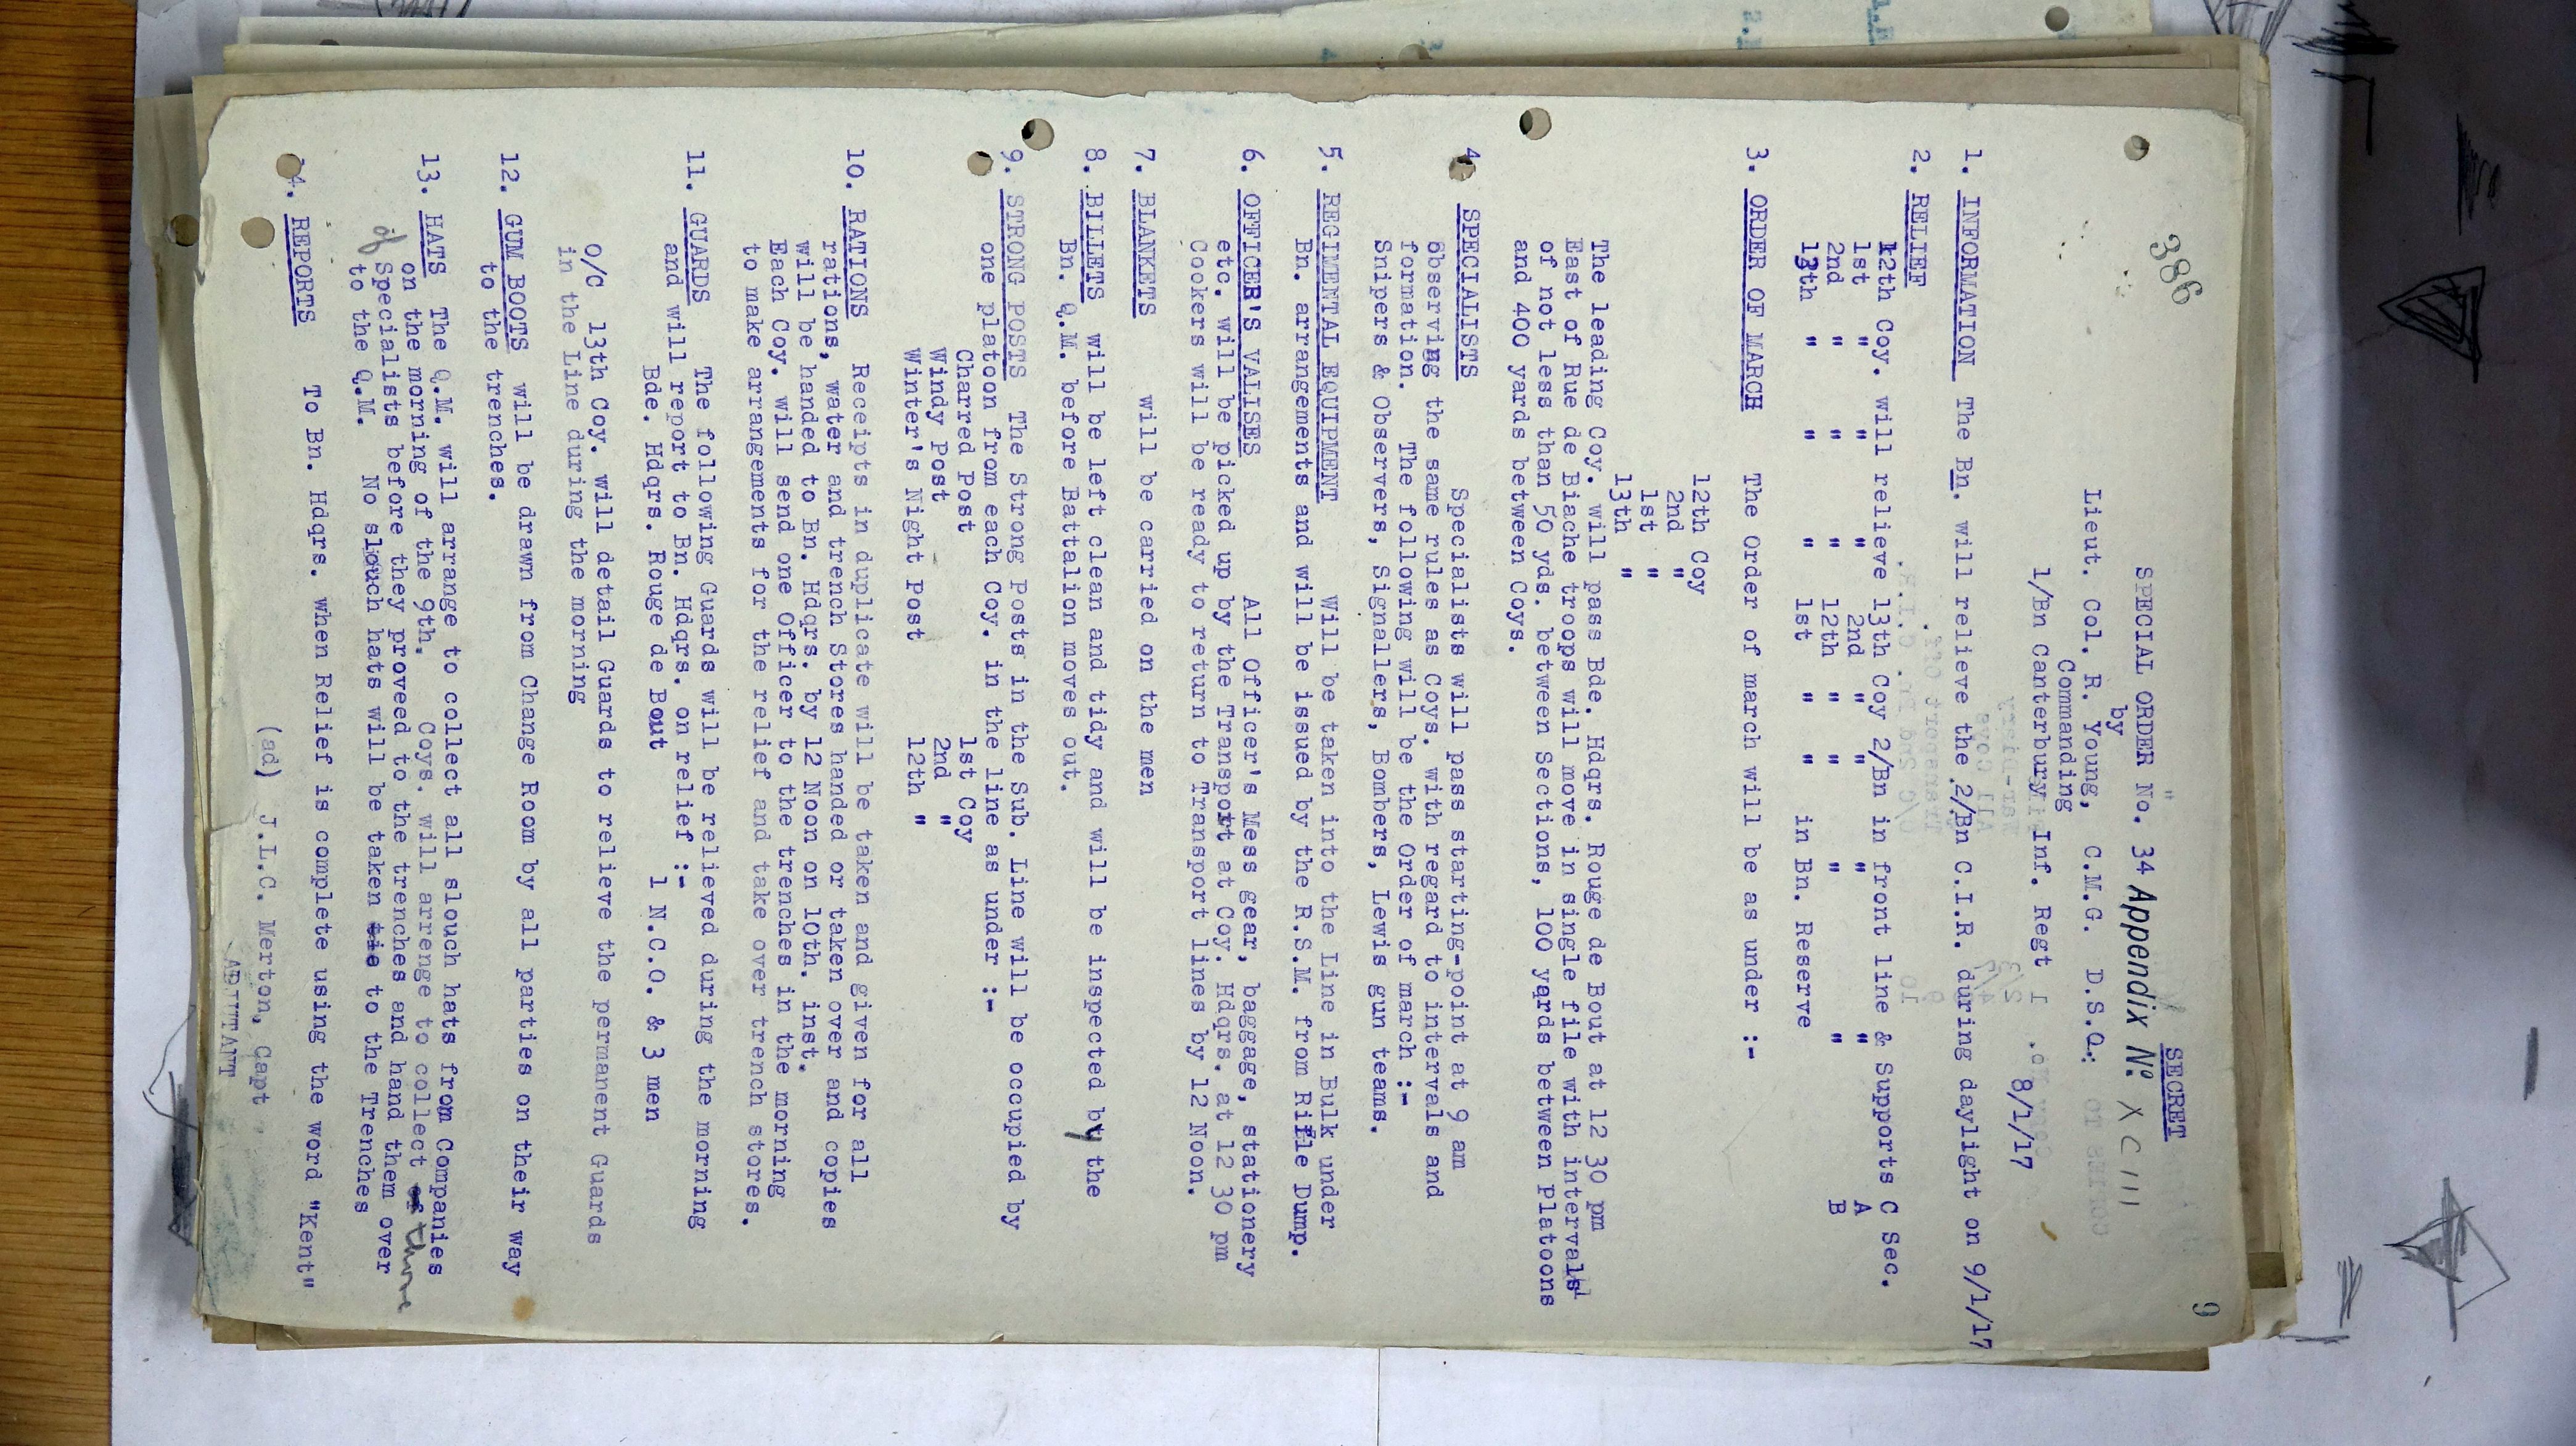 386
9
SECRET
SPECIAL ORDER No. 34 Appendix No. XCIII
by
Lieut. Col. R. Young, C.M.G. D.S.O.
Commanding
1/Bn Canterbury Inf. Regt
8/1/17
1. INFORMATION The Bn. will relieve the 2/Bn C.I.R. during daylight on 9/1/17
2. RELIEF
12th Coy. will relieve 13th Coy 2/Bn in front line & Supports C Sec.
1st " " " " 2nd " " " " A
2nd " " " 12th " " " " B
13th " " " 1st " " in Bn. Reserve
3. ORDER OF MARCH The Order of march will be as under :-
12th Coy
2nd "
1st "
13th "
The leading Coy. will pass Bde. Hdqrs. Rouge de Bout at 12 30 pm
East of Rue de Biache troops will move in single file with intervals
of not less than 50 yds. between Sections, 100 yards between Platoons
and 400 yards between Coys.
4. SPECIALISTS Specialists will pass starting-point at 9 am
observing the same rules as Coys. with regard to intervals and
formation. The following will be the Order of march :-
Snipers & Observers, Signallers, Bombers, Lewis gun teams.
5. REGIMENTAL EQUIPMENT Will be taken into the Line in Bulk under
Bn. arrangements and will be issued by the R.S.M. from Rifle Dump.
6. OFFICER'S VALISES All Officer's Mess gear, baggage, stationery
etc. will be picked up by the Transport at Coy. Hdqrs. at 12 30 pm
Cookers will be ready to return to Transport lines by 12 Noon.
7. BLANKETS will be carried on the men
8. BILLETS will be left clean and tidy and will be inspected by the
Bn. Q.M. before Battalion moves out.
9. STRONG POSTS The Strong Posts in the Sub. Line will be occupied by
one platoon from each Coy. in the line as under :-
Charred Post 1st Coy
Windy Post 2nd "
Winter's Night Post 12th "
10. RATIONS Receipts in duplicate will be taken and given for all
rations, water and trench Stores handed or taken over and copies
will be handed to Bn. Hdqrs. by 12 Noon on 10th. inst.
Each Coy. will send one Officer to the trenches in the morning
to make arrangements for the relief and take over trench stores.
11. GUARDS The following Guards will be relieved during the morning
and will report to Bn. Hdqrs. on relief :-
Bde. Hdqrs. Rouge de Bout 1 N.C.O. & 3 men
O/C 13th Coy. will detail Guards to relieve the permanent Guards
in the Line during the morning
12. GUM BOOTS will be drawn from Change Room by all parties on their way
to the trenches.
13. HATS The Q.M. will arrange to collect all slouch hats from Companies
on the morning of the 9th. Coys. will arrenge to collect of those
of Specialists before they proveed to the trenches and hand them over
to the Q.M. No slouch hats will be taken tie to the Trenches
14. REPORTS To Bn. Hdqrs. when Relief is complete using the word "Kent"
(ad) J.L.C. Merton, Capt.
ADJUTANT